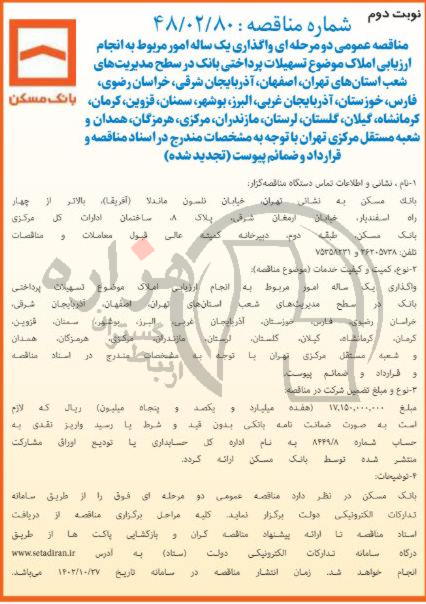 نوبت دوم
شماره مناقصه : ۴۸/۰۲/۸۰
بانک مسکن
مناقصه عمومی دو مرحله ای واگذاری یک ساله امور مربوط به انجام
ارزیابی املاک موضوع تسهیلات پرداختی بانک در سطح مدیریت‌های
شعب استان‌های تهران، اصفهان، آذربایجان شرقی، خراسان رضوی،
فارس، خوزستان، آذربایجان غربی، البرز، بوشهر، سمنان، قزوین، کرمان،
کرمانشاه، گیلان، گلستان، لرستان، مازندران، مرکزی، هرمزگان، همدان و
شعبه مستقل مرکزی تهران با توجه به مشخصات مندرج در اسناد مناقصه و
قرارداد و ضمائم پیوست (تجدید شده)
۱-نام ، نشانی و اطلاعات تماس دستگاه مناقصه‌گزار:
بانک مسکن به نشانی تهران، خیابان نلسون ماندلا (آفریقا)، بالاتر از چهار
راه اسفندیار، خیابان ارمغان شرقی، پلاک ۸، ساختمان ادارات کل مرکزی
بانک مسکن، طبقه دوم، دبیرخانه کمیته عالی قبول معاملات و مناقصات
تلفن: ۲۶۲۰۵۷۳۸ و ۷۵۳۵۸۲۳۱
۲-نوع، کمیت و کیفیت خدمات (موضوع مناقصه):
واگذاری یک ساله امور مربوط به انجام ارزیابی املاک موضوع تسهیلات پرداختی
بانک در سطح مدیریت‌های شعب استان‌های تهران، اصفهان، آذربایجان شرقی،
خراسان رضوی، فارس، خوزستان، آذربایجان غربی، البرز، بوشهر، سمنان، قزوین،
کرمان، کرمانشاه، گیلان، گلستان، لرستان، مازندران، مرکزی، هرمزگان، همدان
و شعبه مستقل مرکزی تهران با توجه به مشخصات مندرج در اسناد مناقصه
و قرارداد و ضمائم پیوست.
۳-نوع و مبلغ تضمین شرکت در مناقصه:
مبلغ ۱۷,۱۵۰,۰۰۰,۰۰۰ (هفده میلیارد و یکصد و پنجاه میلیون) ریال که لازم
است به صورت ضمانت نامه بانکی بدون قید و شرط یا رسید واریز نقدی به
حساب شماره ۸۴۴۹/۸ به نام اداره کل حسابداری یا تودیع اوراق مشارکت
منتشر شده توسط بانک مسکن ارائه گردد.
۴-توضیحات:
بانک مسکن در نظر دارد مناقصه عمومی دو مرحله ای فوق را از طریق سامانه
تدارکات الکترونیکی دولت برگزار نماید. کلیه مراحل برگزاری مناقصه از دریافت
اسناد مناقصه تا ارائه پیشنهاد مناقصه گران و بازگشایی پاکت ها از طریق
درگاه سامانه تدارکات الکترونیکی دولت (ستاد) به آدرس www.setadiran.ir
انجام خواهد شد. زمان انتشار مناقصه در سامانه تاریخ ۱۴۰۲/۱۰/۲۷ می‌باشد.
هزاره